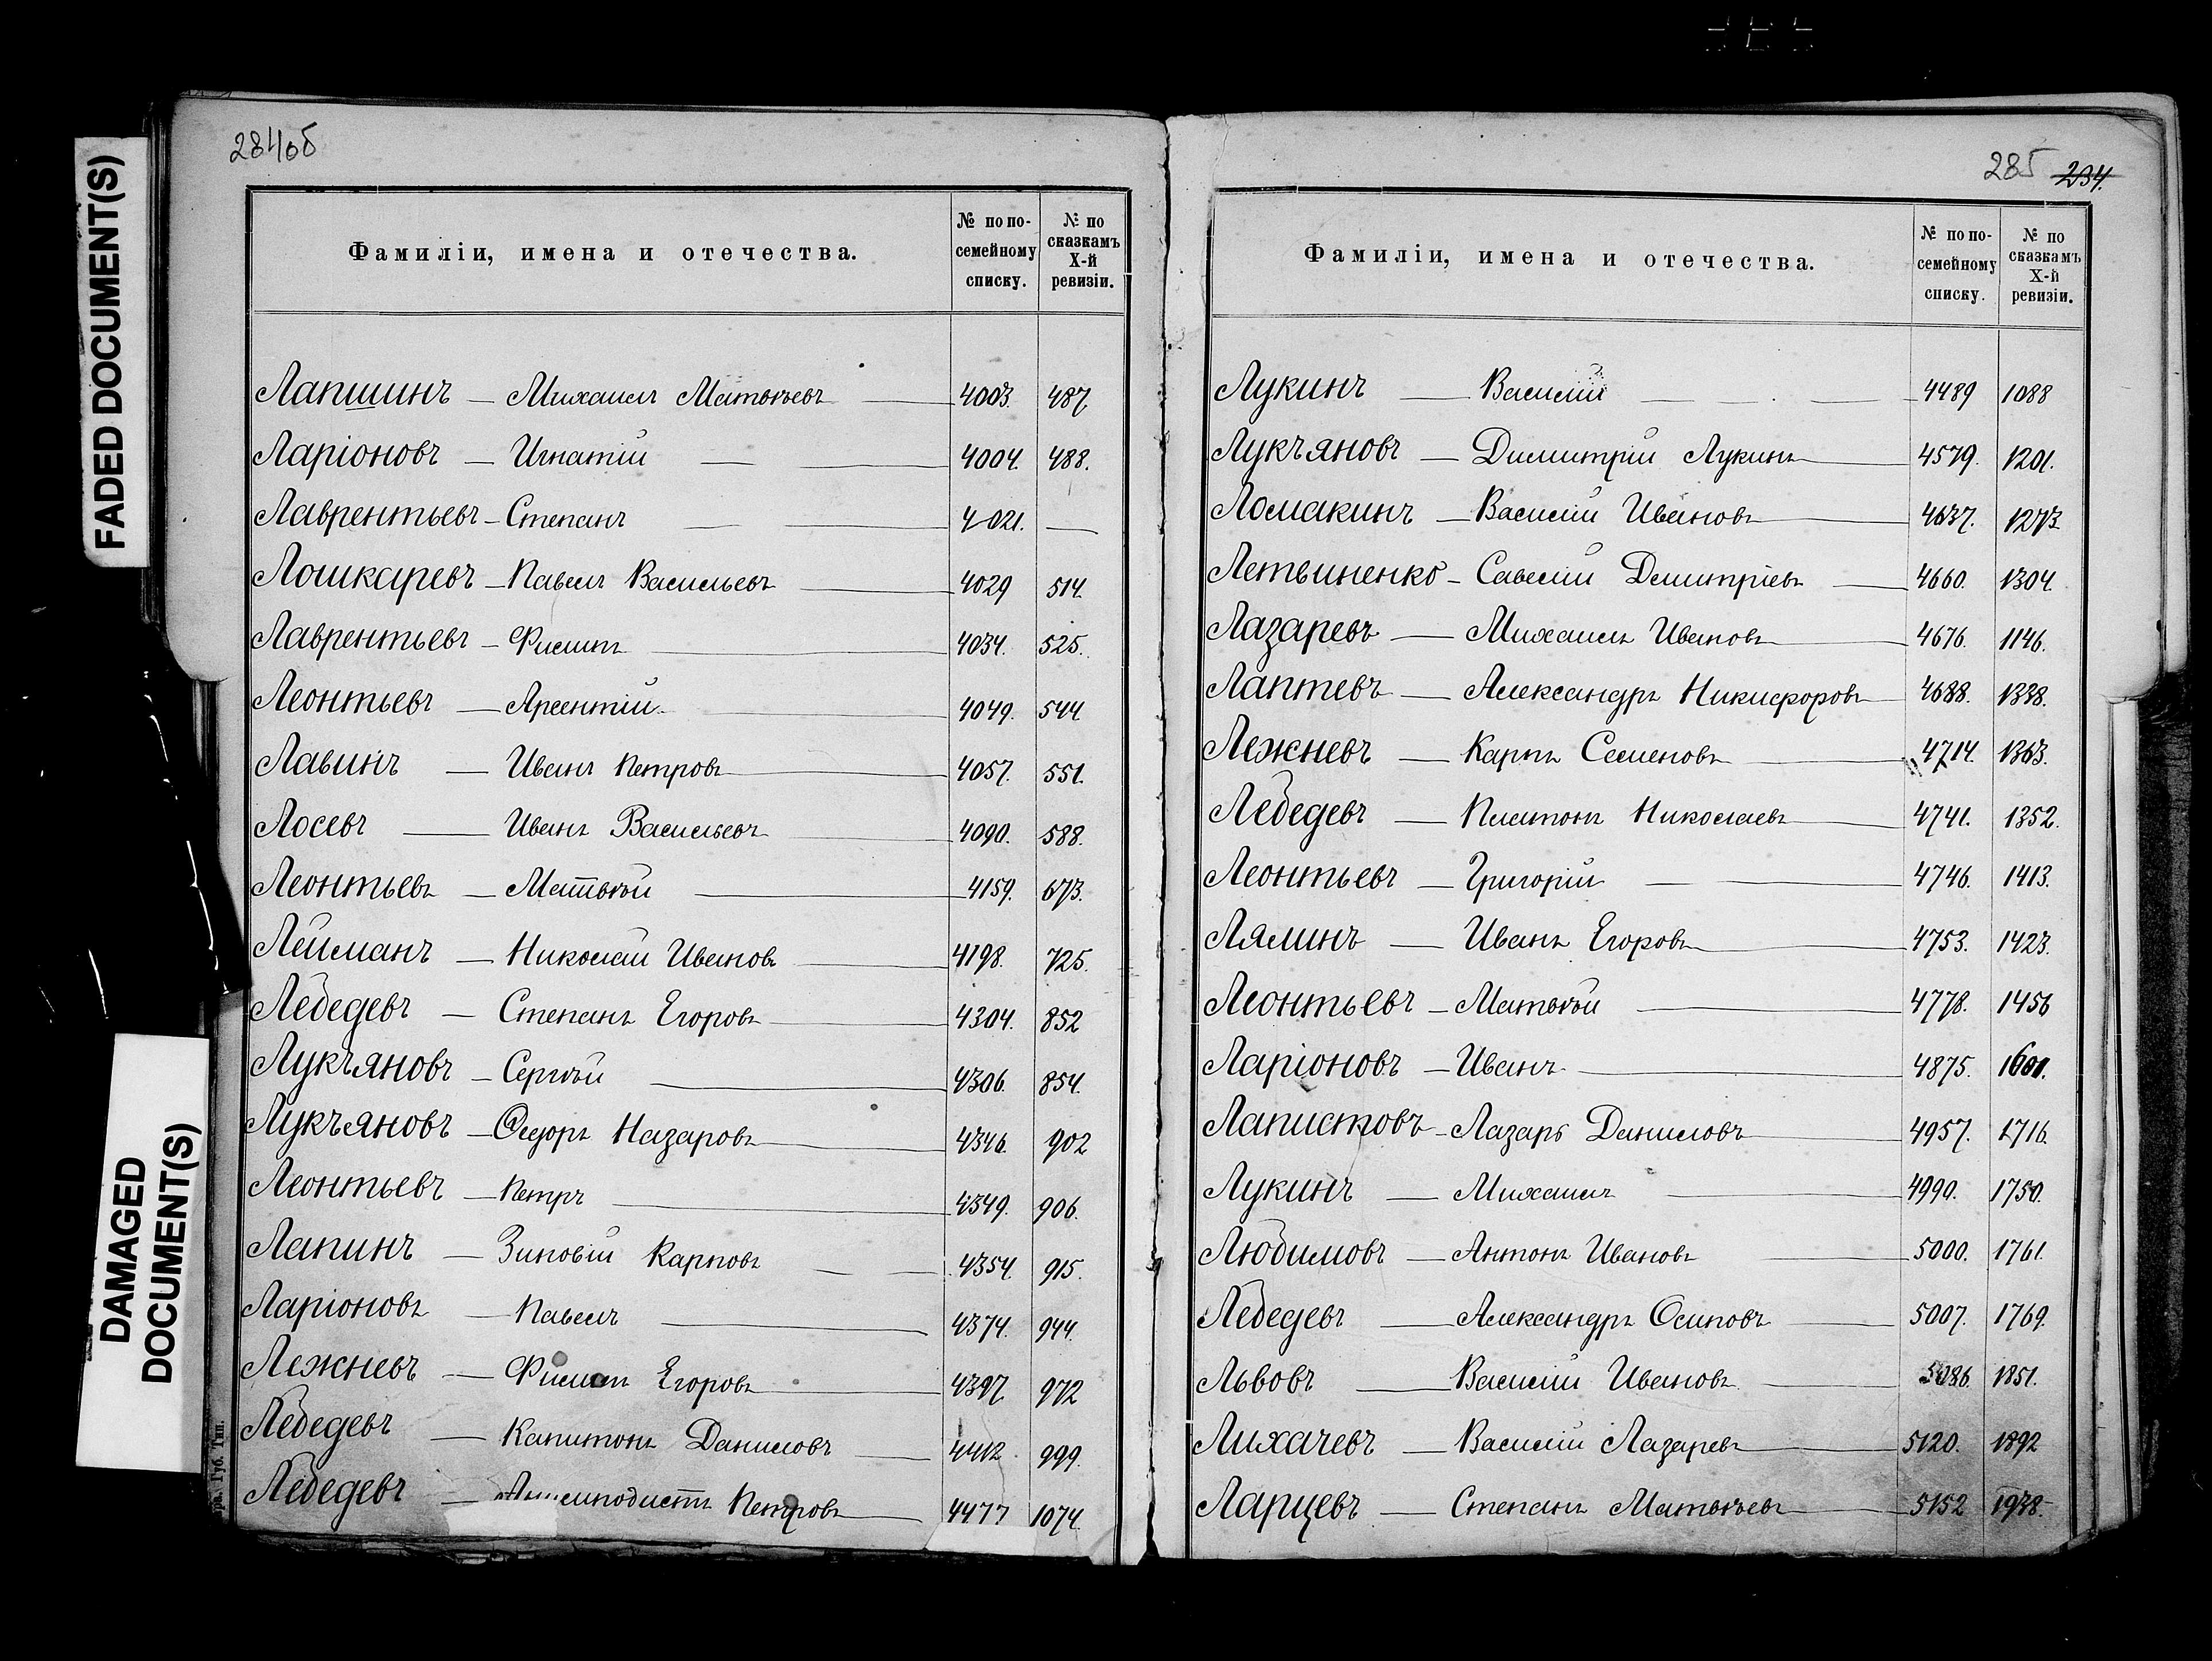 FADED DOCUMENT(S)
DAMAGED
DOCUMENT(S)
284об
Фамиліи, имена и отечества.
№ по по-
семейному
списку.
№ по
сказкамъ
X-й
ревизіи.
Лапшинъ — Михаилъ Матвѣевъ — 4003. 487
Ларіоновъ — Игнатій — 4004. 488.
Лаврентьевъ — Степанъ — 4021. —
Лошкаревъ — Павелъ Васильевъ — 4029 514.
Лаврентьевъ — Филипъ — 4034. 525.
Леонтьевъ — Арсентій — 4049. 544
Лавинъ — Иванъ Петровъ — 4057. 551.
Лосевъ — Иванъ Васильевъ — 4090. 588.
Леонтьевъ — Матвѣй — 4159. 673.
Лейманъ — Николай Ивановъ — 4198. 725.
Лебедевъ — Степанъ Егоровъ — 4304. 852
Лукъяновъ — Сергѣй — 4306. 854.
Лукъяновъ — Ѳедоръ Назаровъ — 4346. 902
Леонтьевъ — Петръ — 4349. 906.
Лапинъ — Зиновій Карповъ — 4354. 915.
Ларіоновъ — Павелъ — 4374. 944.
Лежневъ — Филипъ Егоровъ — 4397. 972
Лебедевъ — Капитонъ Даниловъ — 4412. 999.
Лебедевъ — Петровъ — 4477 1074.
285 234.
Фамиліи, имена и отечества.
№ по по-
семейному
списку.
№ по
сказкамъ
X-й
ревизіи.
Лукинъ — Василій — 4489 1088
Лукъяновъ — Димитрій Лукинъ — 4579. 1201.
Ломакинъ — Василій Ивановъ — 4637. 1273.
Летвиненко — Савелій Дмитріевъ — 4660. 1304.
Лазаревъ — Михаилъ Ивановъ — 4676. 1146.
Лаптевъ — Александръ Никифоровъ — 4688. 1338.
Лежневъ — Карпъ Семеновъ — 4714. 1363.
Лебедевъ — Платонъ Николаевъ — 4741. 1352.
Леонтьевъ — Григорій — 4746. 1413.
Лялинъ — Иванъ Егоровъ — 4753. 1423.
Леонтьевъ — Матвѣй — 4778. 1456
Ларіоновъ — Иванъ — 4875. 1601.
Лапистовъ — Лазарь Даниловъ — 4957. 1716.
Лукинъ — Михаилъ — 4990. 1750.
Любимовъ — Антонъ Ивановъ — 5000. 1761.
Лебедевъ — Александръ Осиповъ — 5007. 1769.
Львовъ — Василій Ивановъ — 5086. 1851.
Лихачевъ — Василій Лазаревъ — 5120. 1892
Ларцевъ — Степанъ Матвѣевъ — 5152 1938.